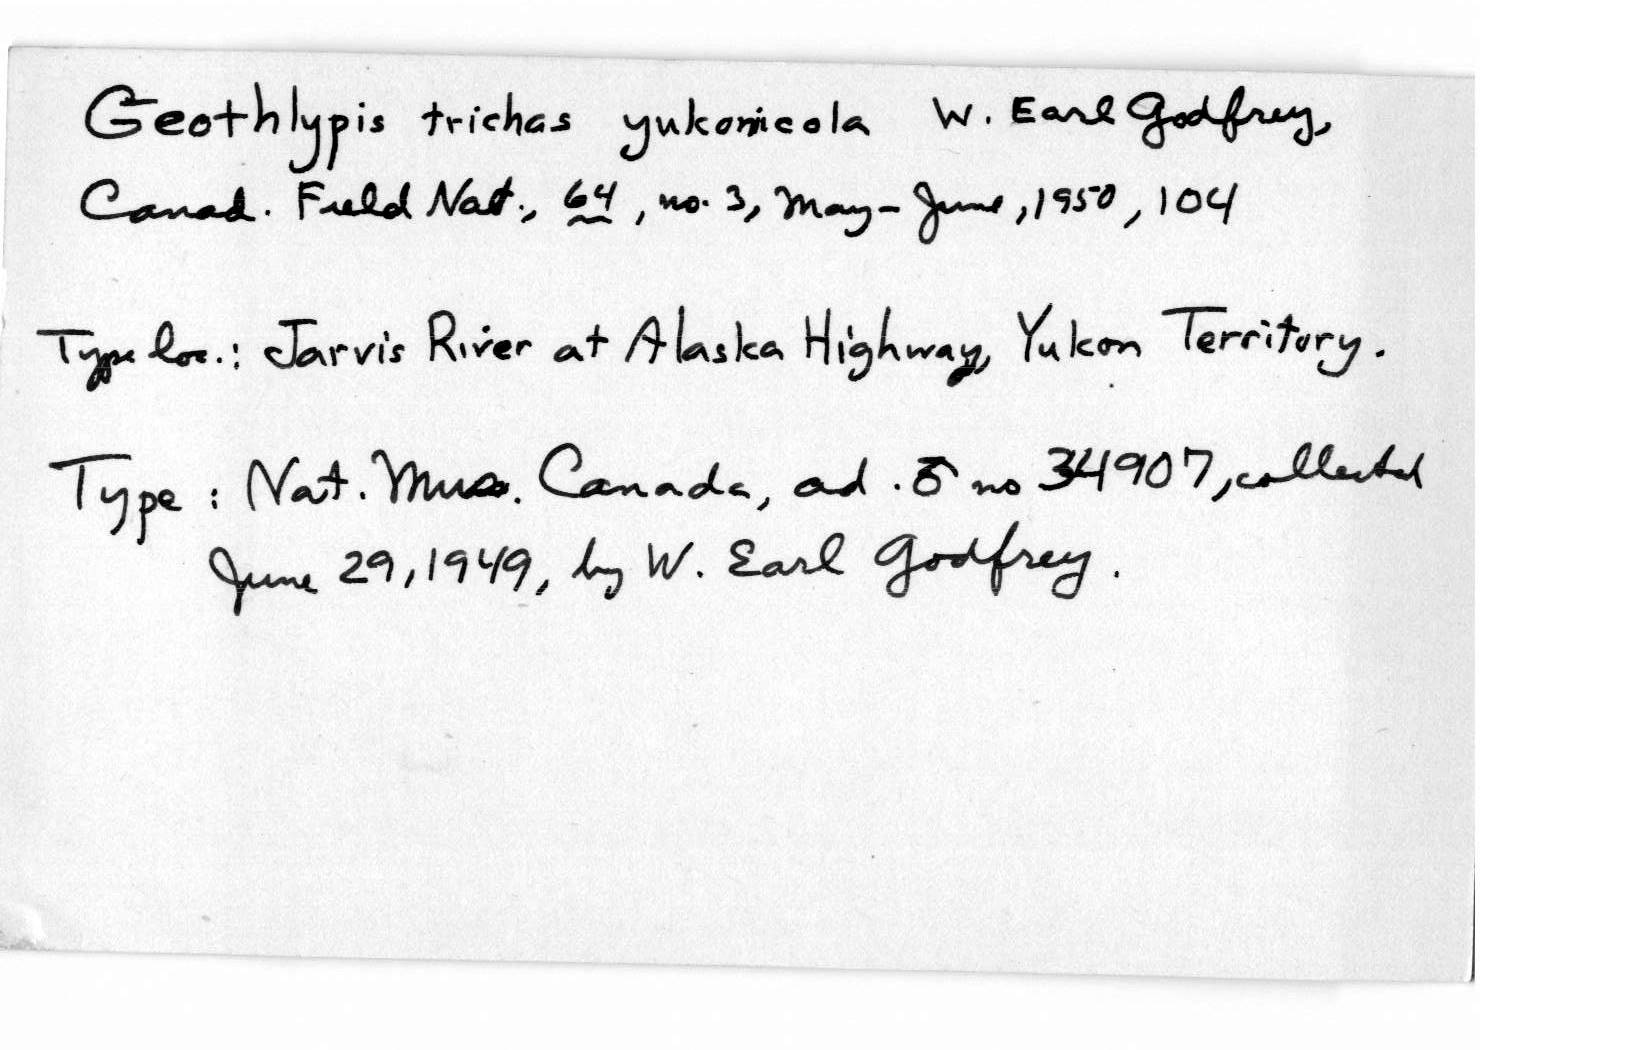 Geothlypis trichas yukonicola W. Earl Godfrey,
Canad. Field Nat., 64, no. 3, May-June, 1950, 104
Type loc.: Jarvis River at Alaska Highway, Yukon Territory.
Type: Nat. Mus. Canada, ad. ♂ no 34907, collected
June 29, 1949, by W. Earl Godfrey.